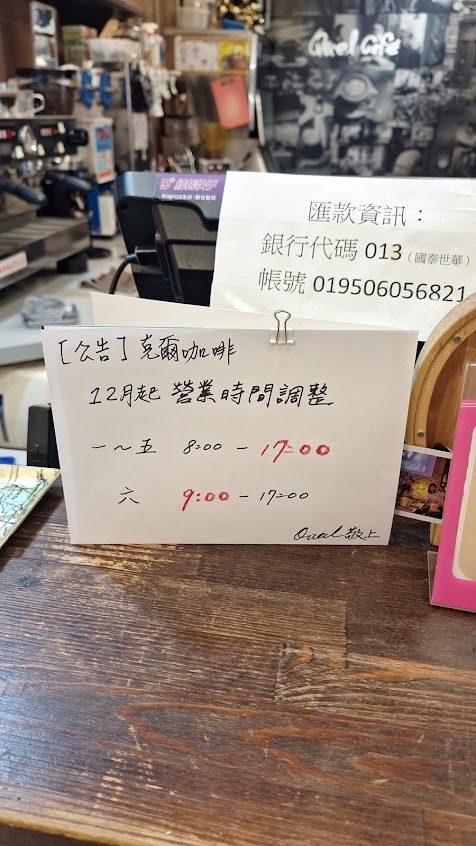 Quel Café
匯款資訊：
銀行代碼 013（國泰世華）
帳號 019506056821
[公告] 克爾咖啡
12月起 營業時間調整
一～五 8:00 - 17:00
六 9:00 - 17:00
Quel 敬上